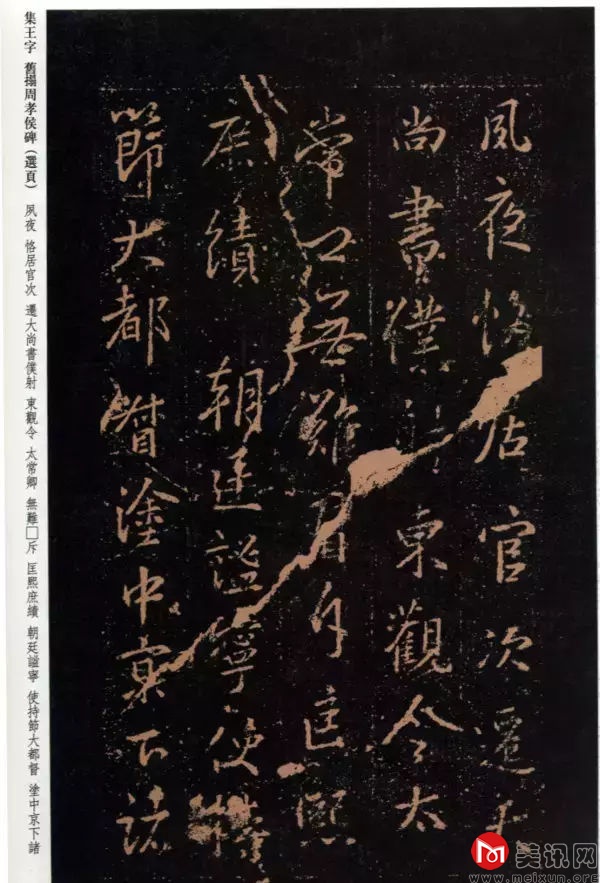 集王字 舊搨周孝侯碑(選頁) 夙夜 恪居官次 遷大尚書僕射 東觀令 太常卿 無難□斥 匡熙庶績 朝廷謐寧 使持節大都督 塗中京下諸
夙夜恪居官次遷大
尚書僕射東觀令太
常 無難 斥匡熙
庶績朝廷謐寧使持
節大都督塗中京下諸
美讯网
www.meixun.org